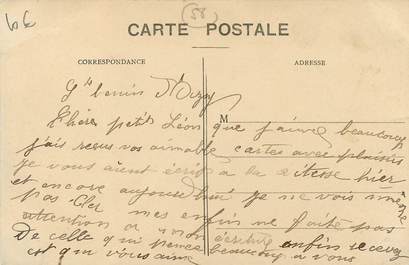 58
CARTE POSTALE
CORRESPONDANCE
ADRESSE
M
St benin d'Azy
Chère petit Léon que j'aime beaucoup
j'ais reçus vos aimable cartes avec plaisirs
je vous aient écrit a la hier
et encore aujourd'hui je ne vois
pas mes enfin ne faite pas
attention a mon écriture enfin recevez
De celle qui pense beaucoup a vous
est qui vous aime